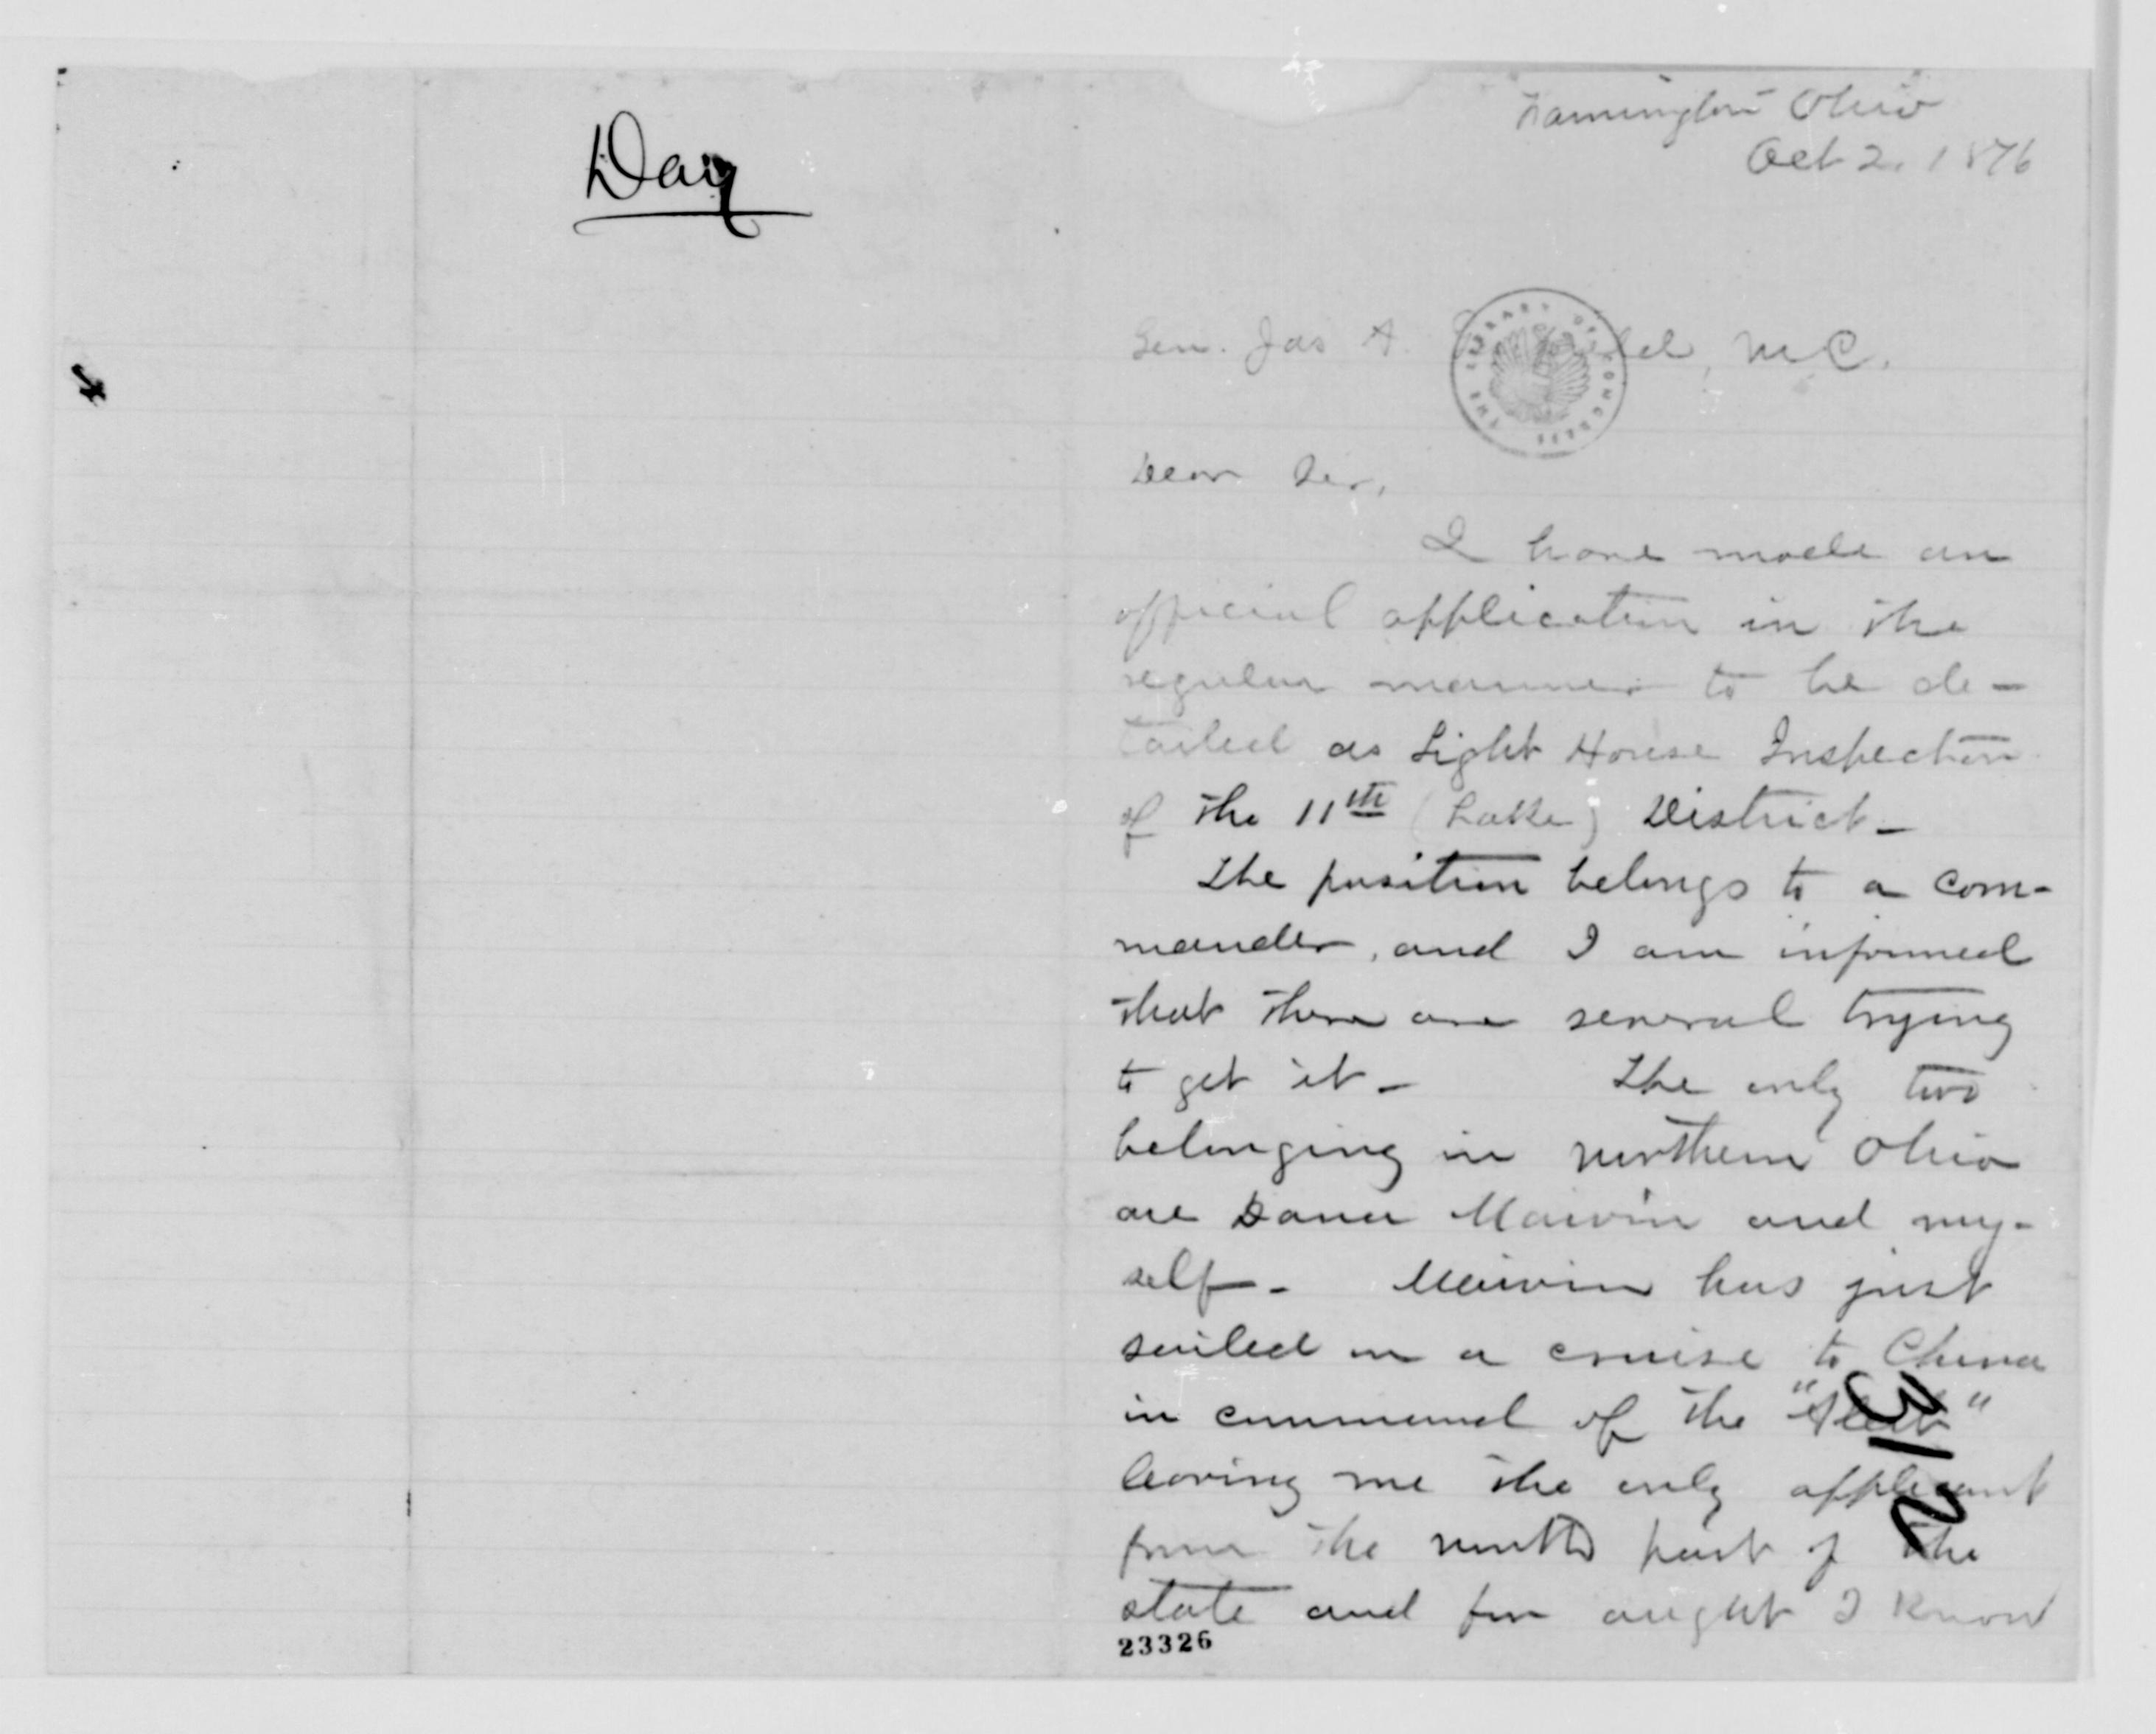 Day
Farmington Ohio
Oct 2. 1876
Gen. Jas A. Garfield, M C.
THE LIBRARY OF CONGRESS
Dear Sir,
I have made an
official application in the
regular manner to be de-
tailed as Light House Inspector
of the 11th (Lake) District-
The position belongs to a com-
mander, and I am informed
that there are several trying
to get it- The only two
belonging in northern Ohio
are and my-
self- has just
sailed on a cruise to China
in command of the "Alert"
leaving me the only applicant
from the north part of the
state and for aught I know
23326